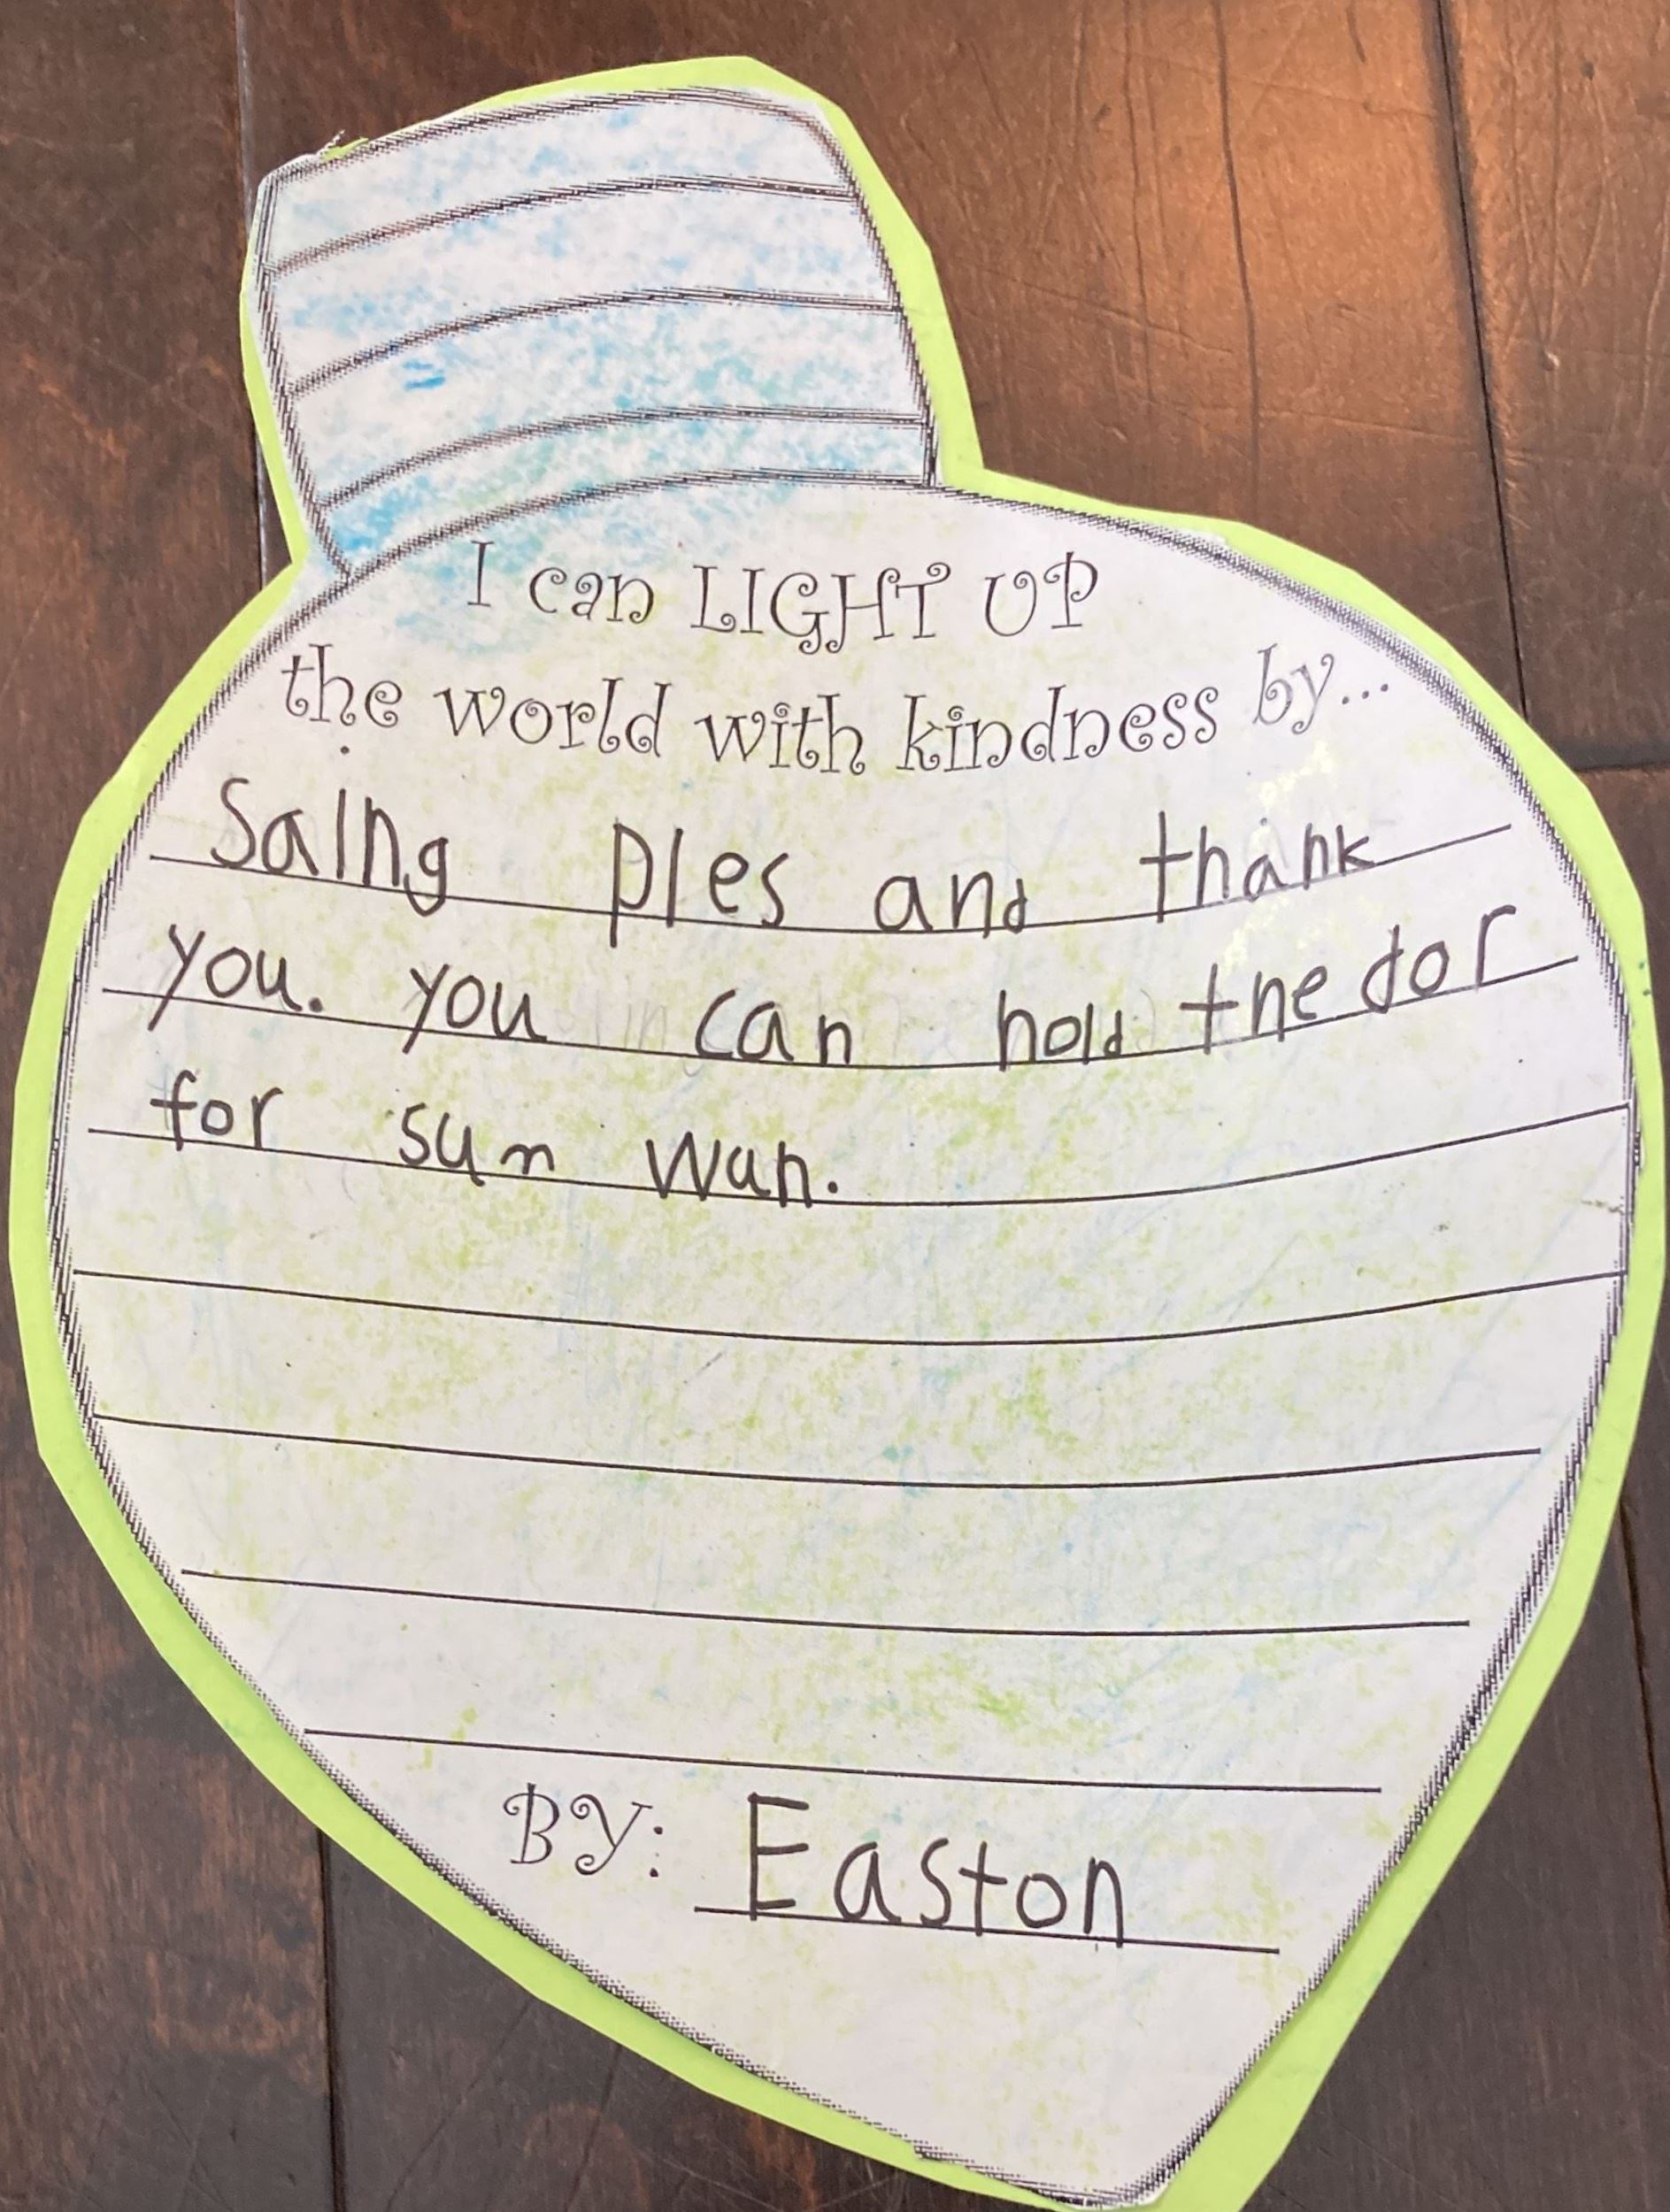 I can LIGHT UP
the world with kindness by...
Saing ples and thank
you. you can hold the dor
for sum wun.
BY: Easton